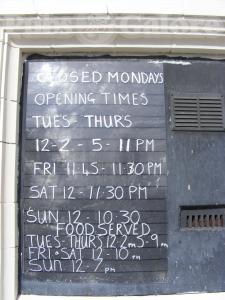 CLOSED MONDAYS
OPENING TIMES
TUES - THURS
12-2 - 5 - 11 PM
FRI 11.45 - 11.30 PM
SAT 12 - 11.30 PM
SUN 12 - 10.30
FOOD SERVED
TUES-THURS 12-2 PM 5-9 PM
FRI • SAT 12 - 10 PM
SUN 12-7 PM